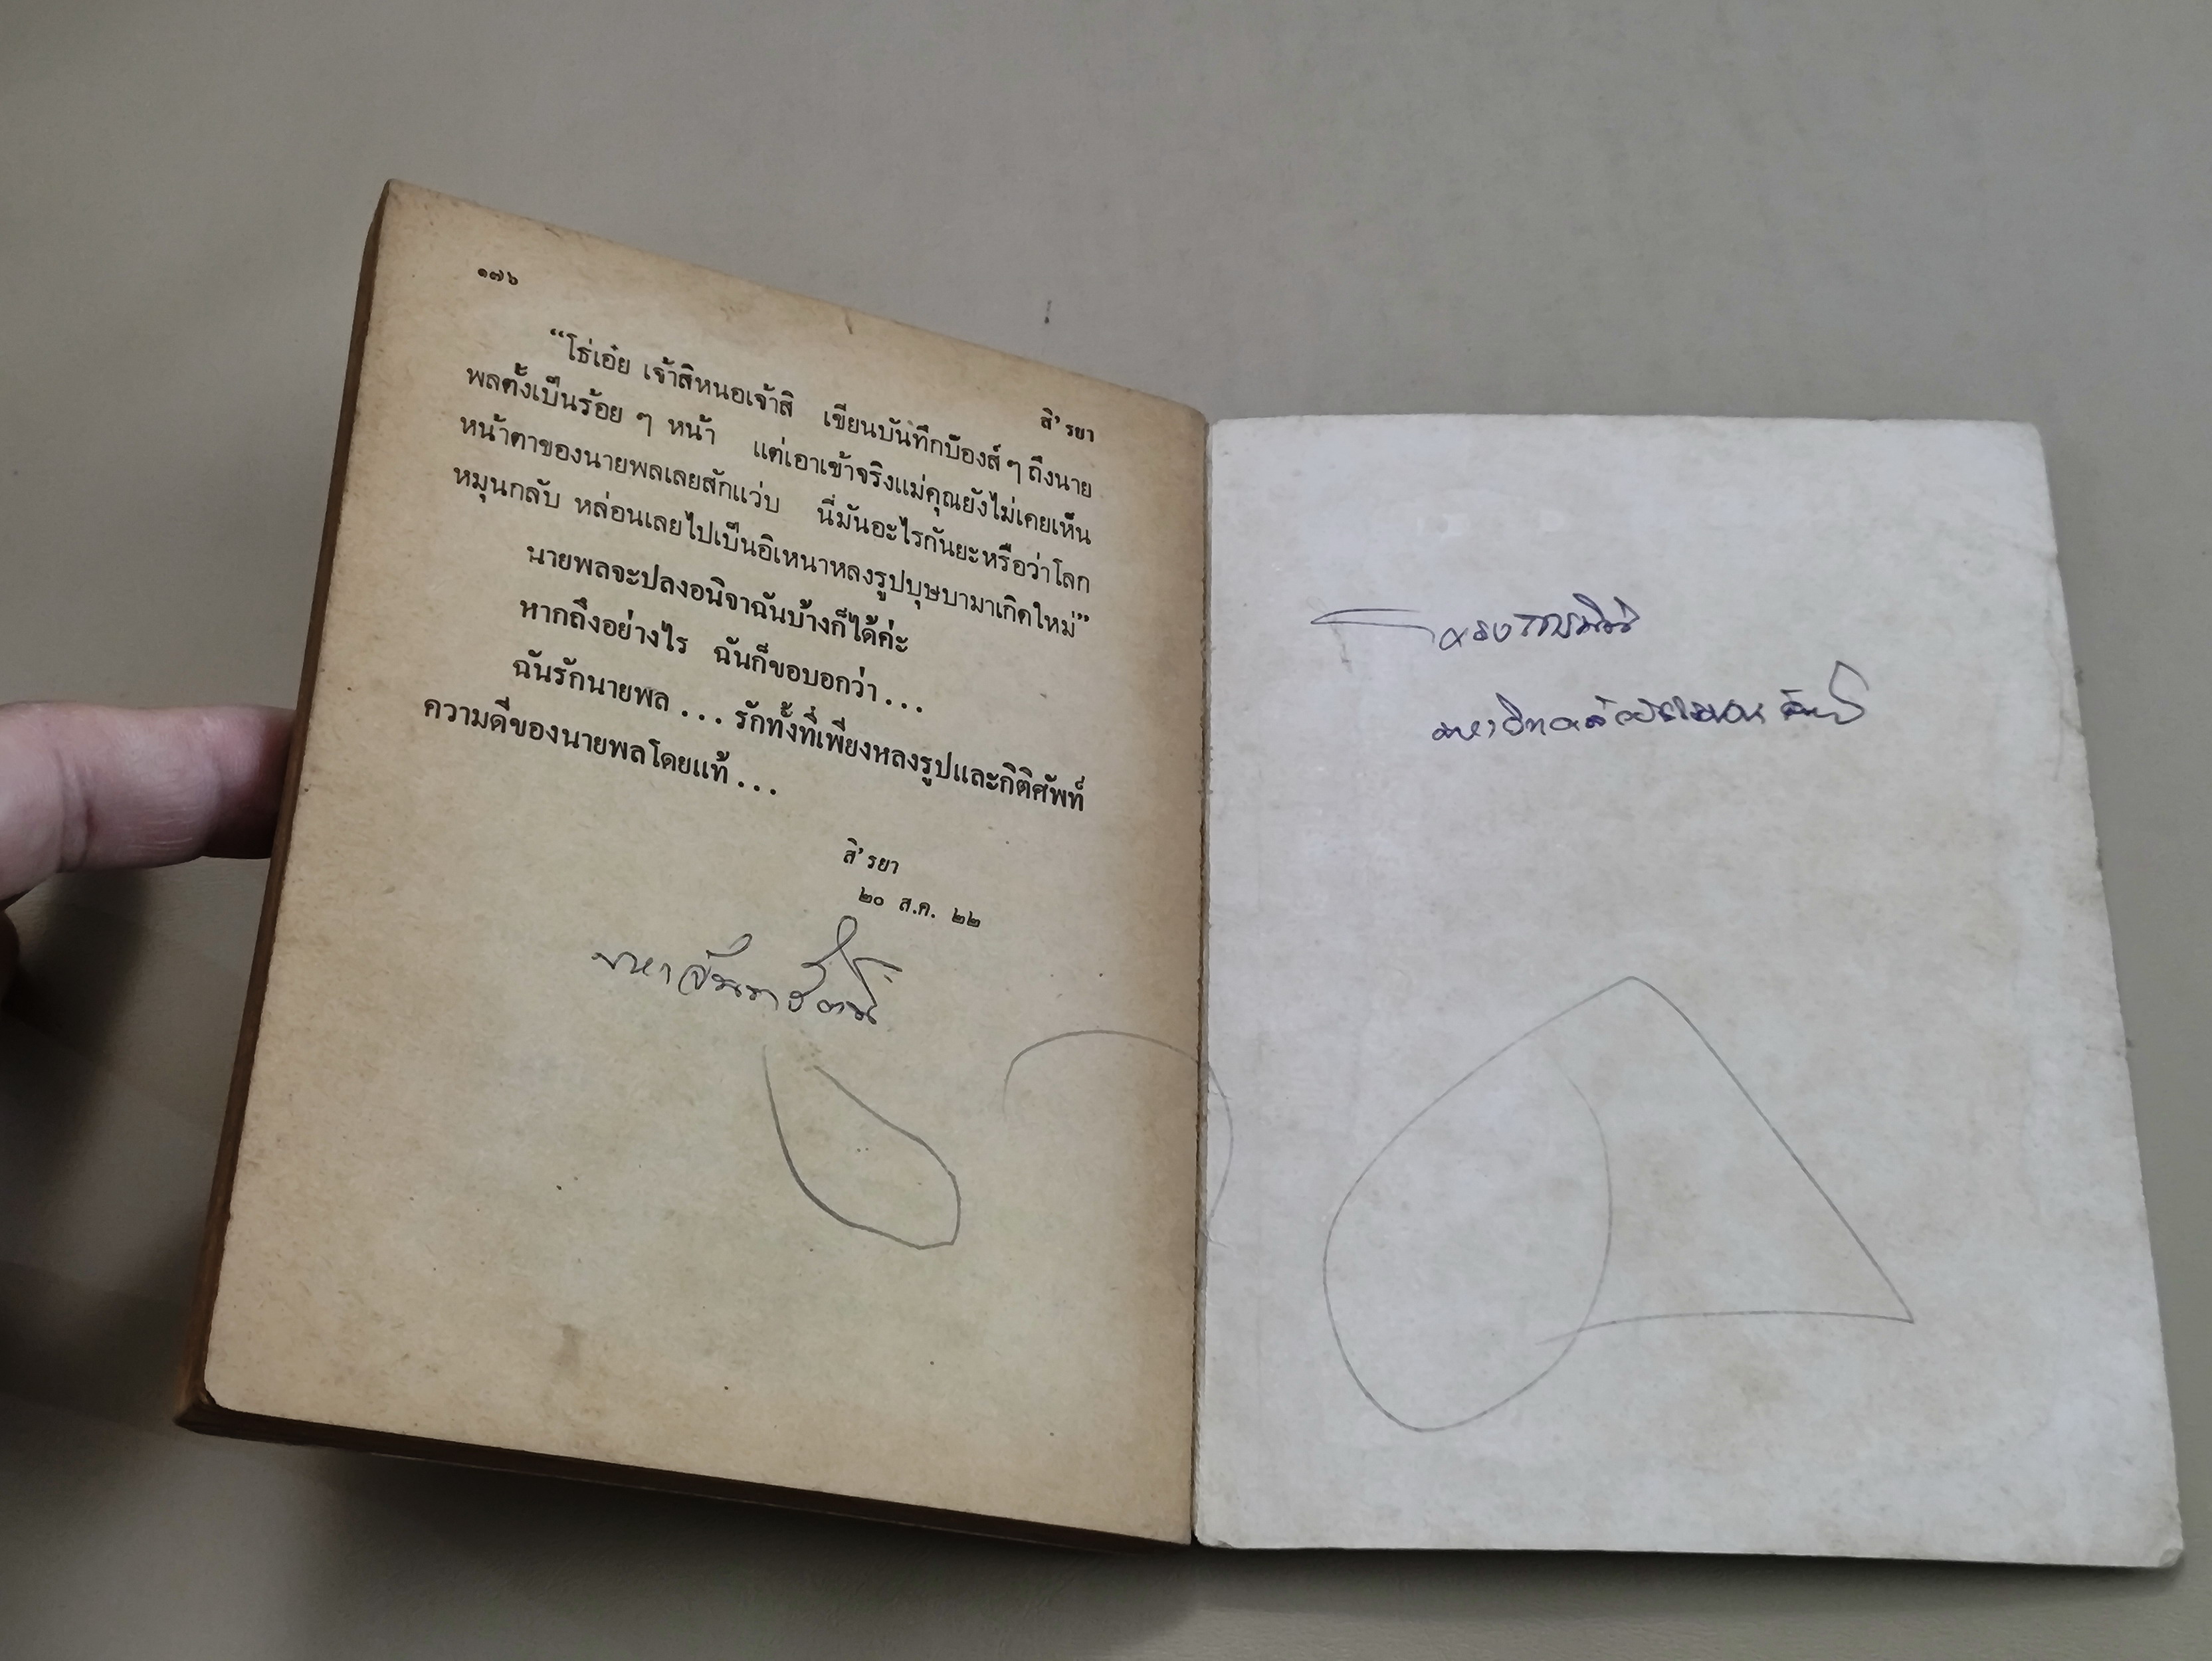 ๑๗๖
สิ’รยา
“โธ่เอ๋ย เจ้าสิหนอเจ้าสิ เขียนบันทึกบ๊องส์ ๆ ถึงนาย
พลตั้งเป็นร้อย ๆ หน้า แต่เอาเข้าจริงแม่คุณยังไม่เคยเห็น
หน้าตาของนายพลเลยสักแว่บ นี่มันอะไรกันยะหรือว่าโลก
หมุนกลับ หล่อนเลยไปเป็นอิเหนาหลงรูปบุษบามาเกิดใหม่”
นายพลจะปลงอนิจาฉันบ้างก็ได้ค่ะ
หากถึงอย่างไร ฉันก็ขอบอกว่า...
ฉันรักนายพล... รักทั้งที่เพียงหลงรูปและกิติศัพท์
ความดีของนายพลโดยแท้...
สิ’รยา
๒๐ ส.ค. ๒๒